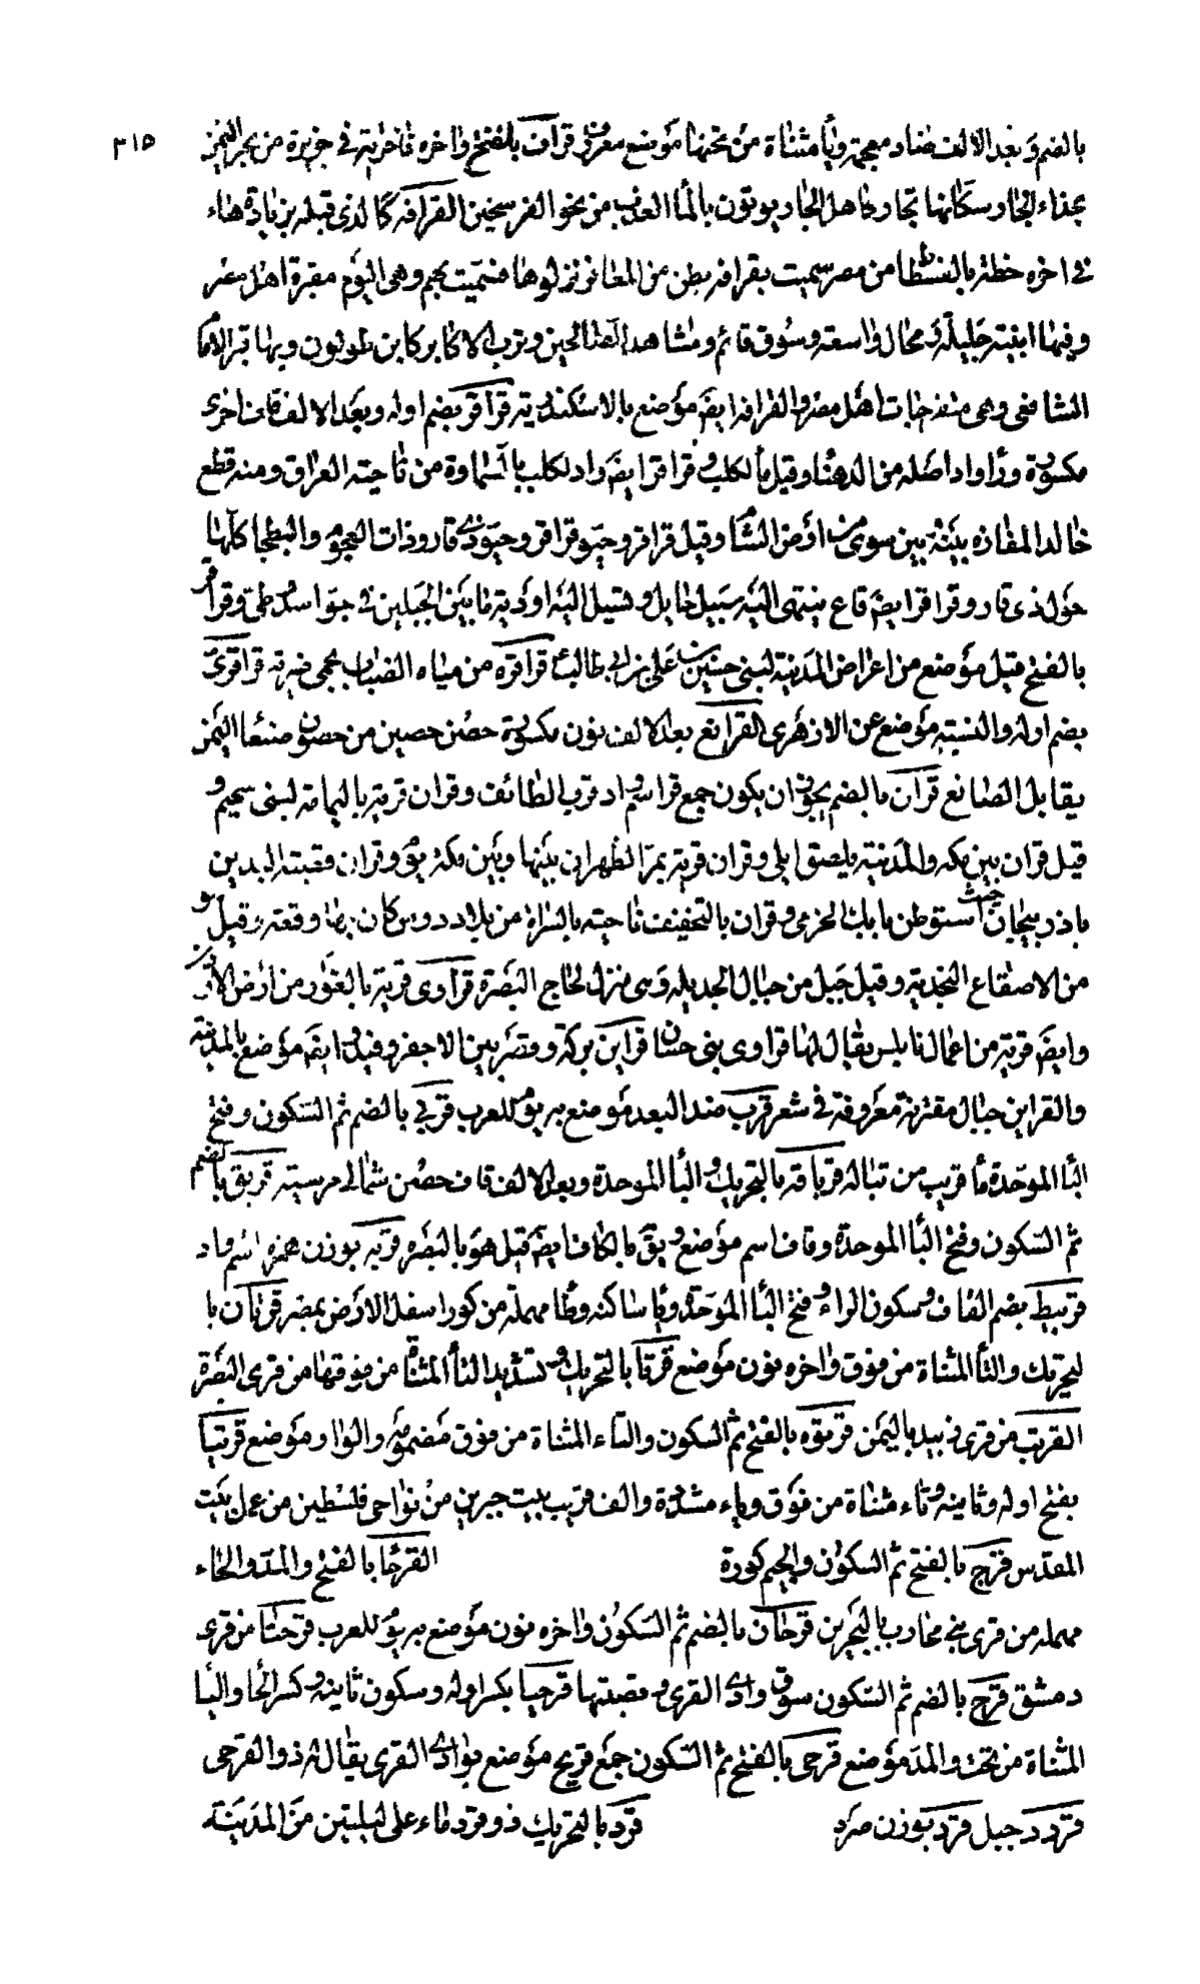 ٣١٥
بالضم وبعد الالف ضاد معجمة ويا مثناة من تحتها موضع معروف قراف بالفتح واخره فا قرية في جزيرة من بحر اليمن
بحذاء الجار وسكانها تجار كاهل الجار يوتون بالما العذب من نحو الفرسخين القرافه كالذي قبله بزيادة هاء
في اخره خطة بالفسطاط من مصر سميت بقرافه بطن من المعافر نزلوها فسميت بهم وهي اليوم مقبرة اهل مصر
وفيها ابنية جليلة ومحال واسعه وسوق قائم ومشاهد الصالحين وترب الاكابر كابن طولون وبها قبر الامام
الشافعي وهي من متفرجات اهل مصر والقرافه ايضا موضع بالاسكندرية قراقر بضم اوله وبعد الالف قاف اخرى
مكسورة ورا واد اصله من الدهنا وقيل ما لكلب وقراقر ايضا واد لكلب بالسماوة من ناحية العراق ومنه قطع
خالد المفازه بينه بين سوى من ارض الشام وقيل قراقر وحنو قراقر وحنو ذي قار وذات العجرم والبطحا كلها
حول ذي قار وقراقر ايضا قاع ينتهي اليه سيل حايل وتسيل اليه اودية مابين الجبلين في حق اسد وطي وقراقر
بالفتح قيل موضع من اعراض المدينة لبني حسين بن علي بن ابي طالب قراقره من مياه الضباب بحمى ضرية قراقرى
بضم اوله والنسبة موضع عن الازهري القرانع بعد الالف نون مكسورة حصن حصين من حصون صنعا اليمن
يقابل المصانع قران بالضم يجوز ان يكون جمع قر اسم واد قرب الطائف وقران قرية باليمامة لبني سحيم و
قيل قران بين مكه والمدينة بلصق ابلى وقران قرية بمر الظهران بينها وبين مكة يوم وقران قصبة البذين
باذربيجان حيث استوطن بابك الخرمي وقران بالتخفيف ناحية بالسراة من بلاد دوس كان بها وقعة وقيل هو
من الاصقاع النجدية وقيل جبل من جبال الجديله وهى منزل لحاج البصرة قراوى قرية بالغور من ارض الاردن
وايضا قرية من اعمال نابلس يقال لها قراوى بنى حسان قراين بركة وقصر بين الاجفر وفيد ايضا موضع بالمدينة
والقراين جبال مقترنة معروفة في شعر قرب ضد البعد موضع به يوم للعرب قربى بالضم ثم السكون وفتح
البا الموحدة ما قريب من تباله قرباقه بالتحريك والبا الموحدة وبعد الالف قاف حصن شمالي مرسية قربق بالضم
ثم السكون وفتح البا الموحدة وقاف اسم موضع ويق بالكاف ايضا قيل هو بالبصره قربه بوزن همزه اسم واد
قربيط بضم القاف وسكون الراء وفتح البا الموحدة ويا ساكنه وطا مهملة من كور اسفل الارض بمصر قرتان با
لتحريك والتا المثناة من فوق واخره نون موضع قرتا بالتحريك وتشديد التا المثناة من فوقها من قرى البصرة
القرتب من قرى زبيد باليمن قرتوه بالفتح ثم السكون والتاء المثناة من فوق مضمومه والواو موضع قرتيا
بفتح اوله وثانيه وتاء مثناة من فوق وياء مشددة والف قريب بيت جبرين من نواحي فلسطين من عمل بيت
المقدس قرج بالفتح ثم السكون والجيم كورة القرحا بالفتح والمد والحاء
مهمله من قرى بني محارب بالبحرين قرحان بالضم ثم السكون واخره نون موضع به يوم للعرب قرحتا من قرى
دمشق قرح بالضم ثم السكون سوق وادى القرى وقصبتها قرحيا بكسر اوله وسكون ثانيه وكسر الحا واليا
المثناة من تحت والمد موضع قرحى بالفتح ثم السكون جمع قريح موضع بوادى القرى يقال له ذو القرحى
قردد جبل قرد بوزن صرد قرد بالتحريك ذو قرد ماء على ليلتين من المدينة